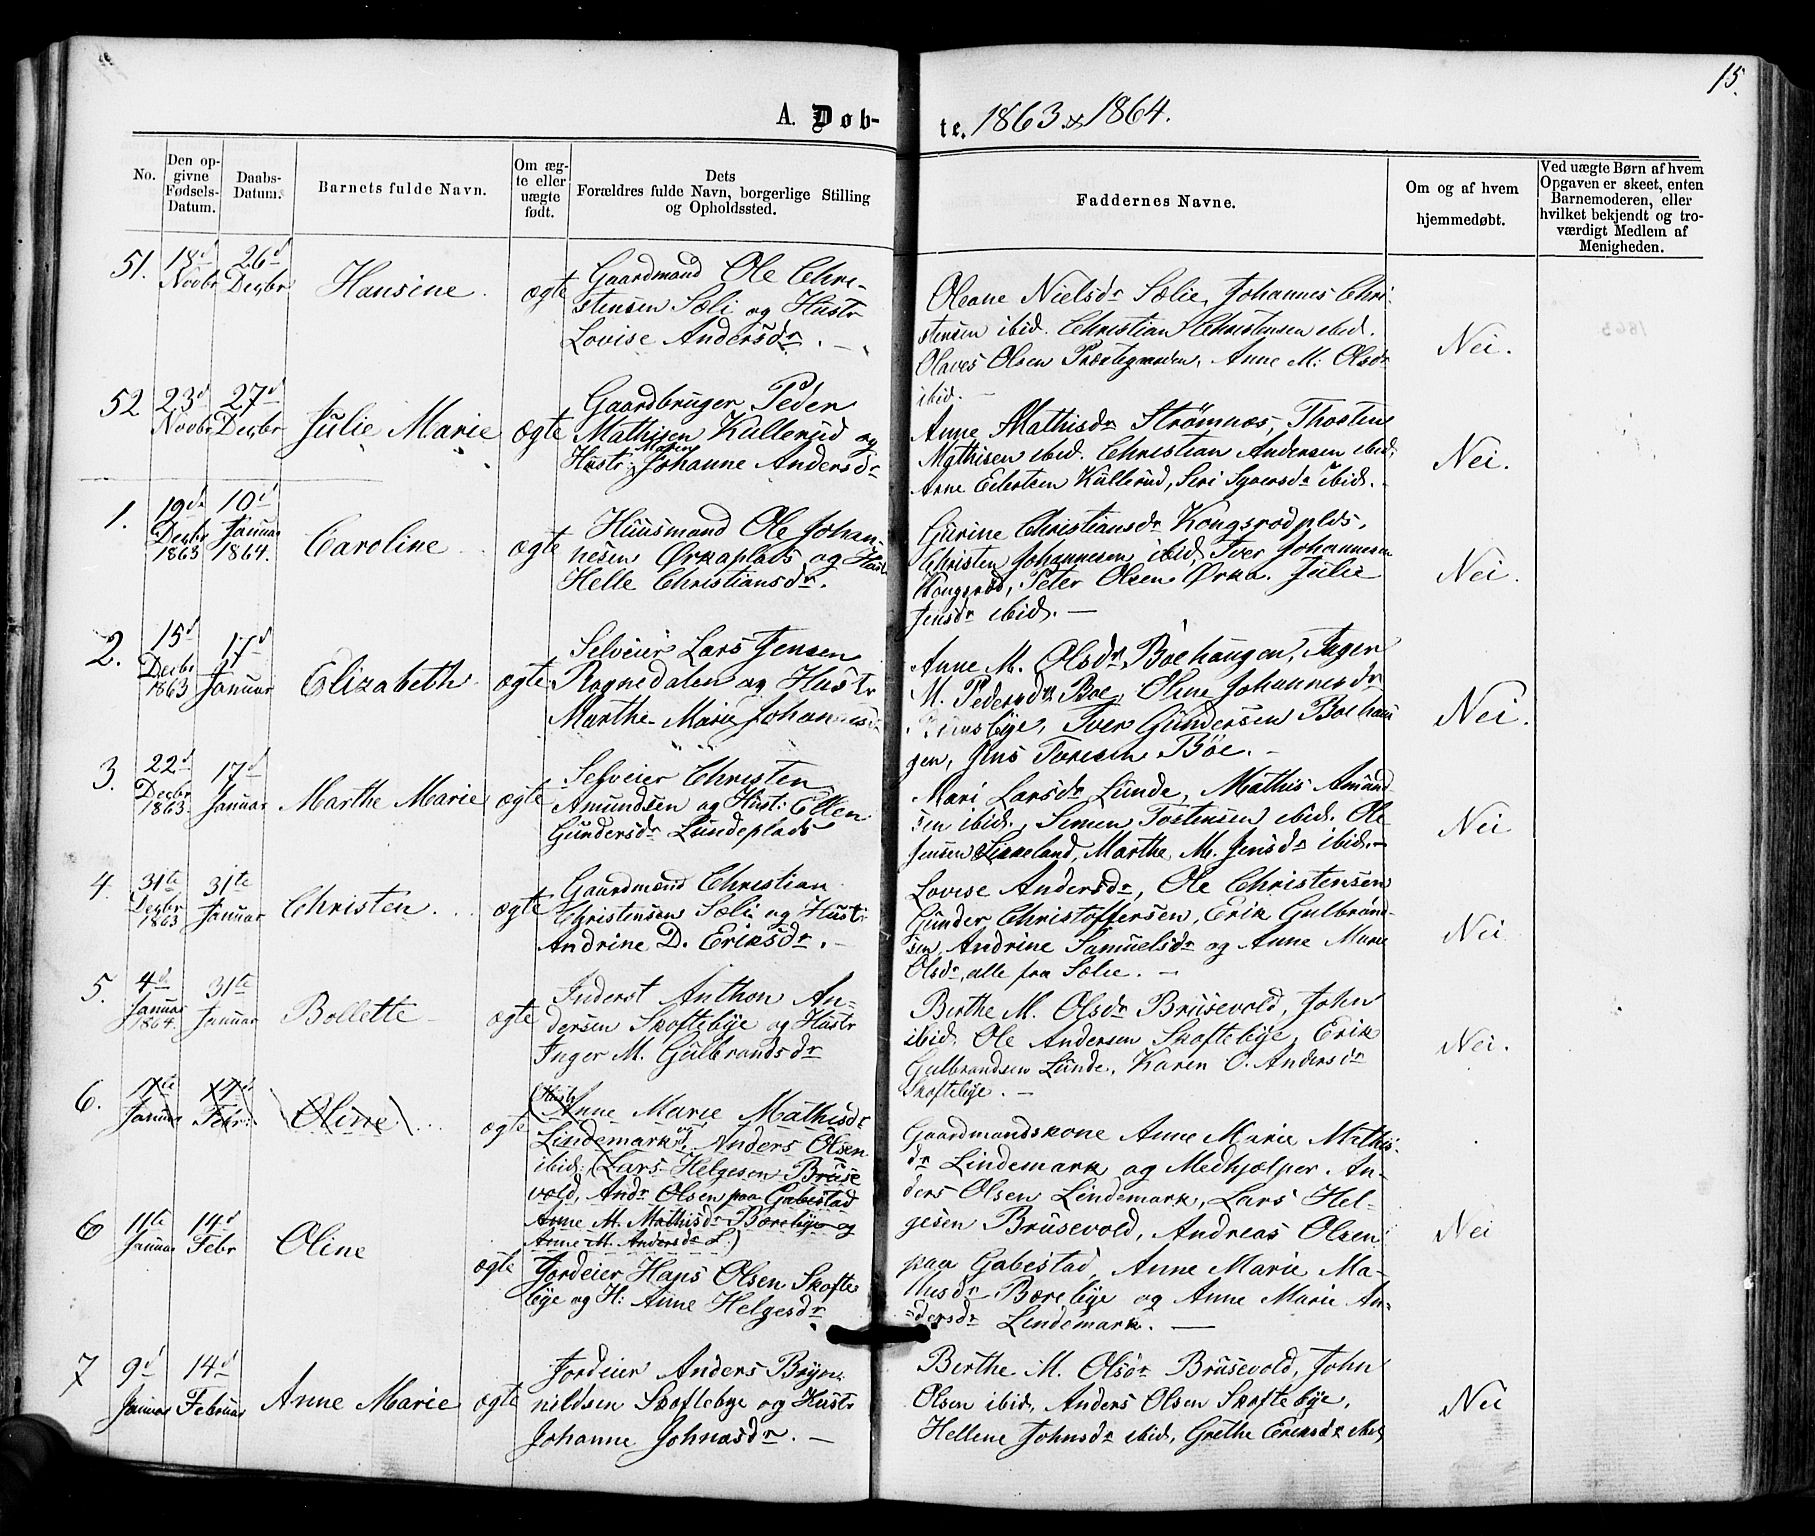 15.
A. Døb-te. 1863 & 1864.
No.
Den opgivne Fødsels-Datum.
Daabs-Datum.
Barnets fulde Navn.
Om ægte eller uægte født.
Dets Forældres fulde Navn, borgerlige Stilling og Opholdssted.
Faddernes Navne.
Om og af hvem hjemmedøbt.
Ved uægte Børn af hvem Opgaven er skeet, enten Barnemoderen, eller hvilket bekjendt og troværdigt Medlem af Menigheden.
51.
18d Novbr
26d Decbr
Hansine
ægte
Gaardmand Ole Chri-
stensen Sæli og Hustr
Lovise Andersdr. —
Oleane Nielsdr Sælie, Johannes Chri-
stensen ibid. Christian Christensen ibid.
Olaves Olsen Præstegaarden, Anne M. Olsdr
ibid. —
Nei.
52
23d Novbr
27d Decbr
Julie Marie
ægte
Gaardbruger Peder
Mathisen Kullerud og
Hustr: Maren Johanne Andersdr
Anne Mathisdr Strømnæs, Thosten
Mathisen ibid. Christian Andersen ibid.
Arne Edertsen Kullerud, Siri Syversdr ibid. —
Nei.
1.
19de Decbr 1863
10d Januar 1864.
Caroline
ægte
Huusmand Ole Johan-
nesen Ørkaplads og Hust
Helle Christiansdr.
Gurine Christiansdr Kongsrødplds.
Christen Johannesen ibid, Iver Johannesen
Kongsrød, Peter Olsen Ørka. Julie
Jensdr ibid. —
Nei.
2.
15d Decbr 1863
17d Januar
Elizabeth
ægte
Selveier Lars Jensen
Rognedalen og Hustr
Marthe Marie Johannesdr
Anne M. Olsdr Böehaugen, Inger
M. Pedersdr Boe, Oline Johannesdr
Iver Gundersen Boehau
gen, Jens Toresen Böe. —
Nei.
3.
22d Decbr 1863.
17d Januar
Marthe Marie
ægte
Selveier Christen
Amundsen og Hust: Ellen
Gundersdr Lundeplads
Mari Larsdr Lunde, Mathis Amund
sen ibid. Simen Tostensen ibid. Ole
Jensen Sikkeland, Marthe M. Jensdr ibid. —
Nei
4.
31te Decbr 1863
31te Januar
Christen
ægte
Gaardmænd Christian
Christensen Sæli og Hustr
Andrine D. Eriksdr. —
Lovise Andersdr, Ole Christensen
Gunder Christoffersen, Erik Gulbrand-
sen, Andrine Samuelsdr og Anne Marie
Olsdr, alle fra Sælie. —
Nei
5.
4d Januar 1864.
31te Januar
Bollette
ægte
Inderst Anthon An-
dersen Skoftebye og Hustr
Inger M. Gulbrandsdr
Berthe M. Olsdr Brusevold, John
ibid. Ole Andersen Skoftebye, Erik
Gulbrandsen Lunde, Karen O. Andersdr
Skoftebye. —
Nei.
6.
11te Januar
14d Febr:
Oline
ægte
(Hustr Anne Marie Mathisdr
Lindemark og Anders Olsen
ibid. (Lars Helgesen Bruse
vold, Andr Olsen paa Gabestad
Anne M. Mathisdr Bærebye og
Anne M. Andersdr L.)
Gaardmandskone Anne Marie Mathis-
dr Lindemark og Medhjælper An-
ders Olsen Lindemark, Lars Hel-
gesen Brusevold, Andreas Olsen
paa Gabestad, Anne Marie Ma-
thisdr Bærebye og Anne Marie An-
dersdr Lindemark. —
6
11te Januar
14d Febr
Oline
ægte
Jordeier Hans Olsen Skofte
bye og H: Anne Helgesdr
Nei
7
9d Januar
14d Februar
Anne Marie
ægte
Jordeier Anders Bryn-
nildsen Skoftebye og Hustr
Johanne Johnasdr. —
Berthe M. Olsdr Brusevold, John
Olsen ibid, Anders Olsen Skoftebye,
Hellene Johnsdr ibid, Grethe Eriksdr ibid,
Nei